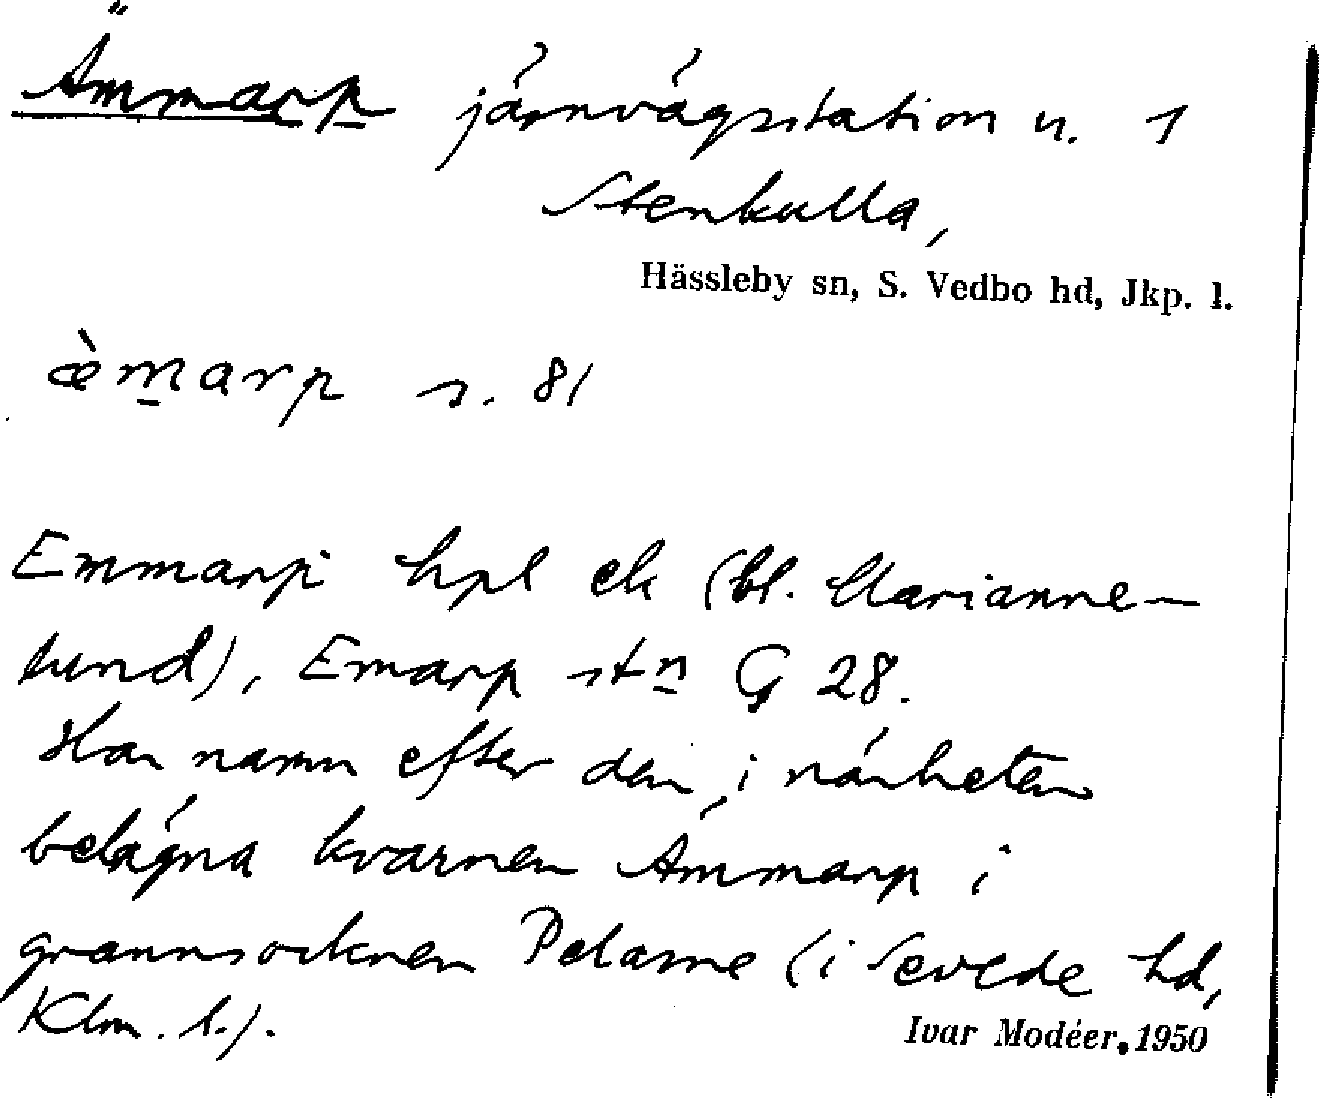 Ämmarp järnvägsstation u. 1
Stenkulla,
Hässleby sn, S. Vedbo hd, Jkp. l.
æ̀m̲arp s. 81
Emmarp hpl ek (bl. Marianne-
lund), Emarp stn G 28.
Har namn efter den i närheten
belägna kvarnen Ämmarp i
grannsocknen Pelarne (i Sevede hd,
Klm. l.).
Ivar Modéer, 1950